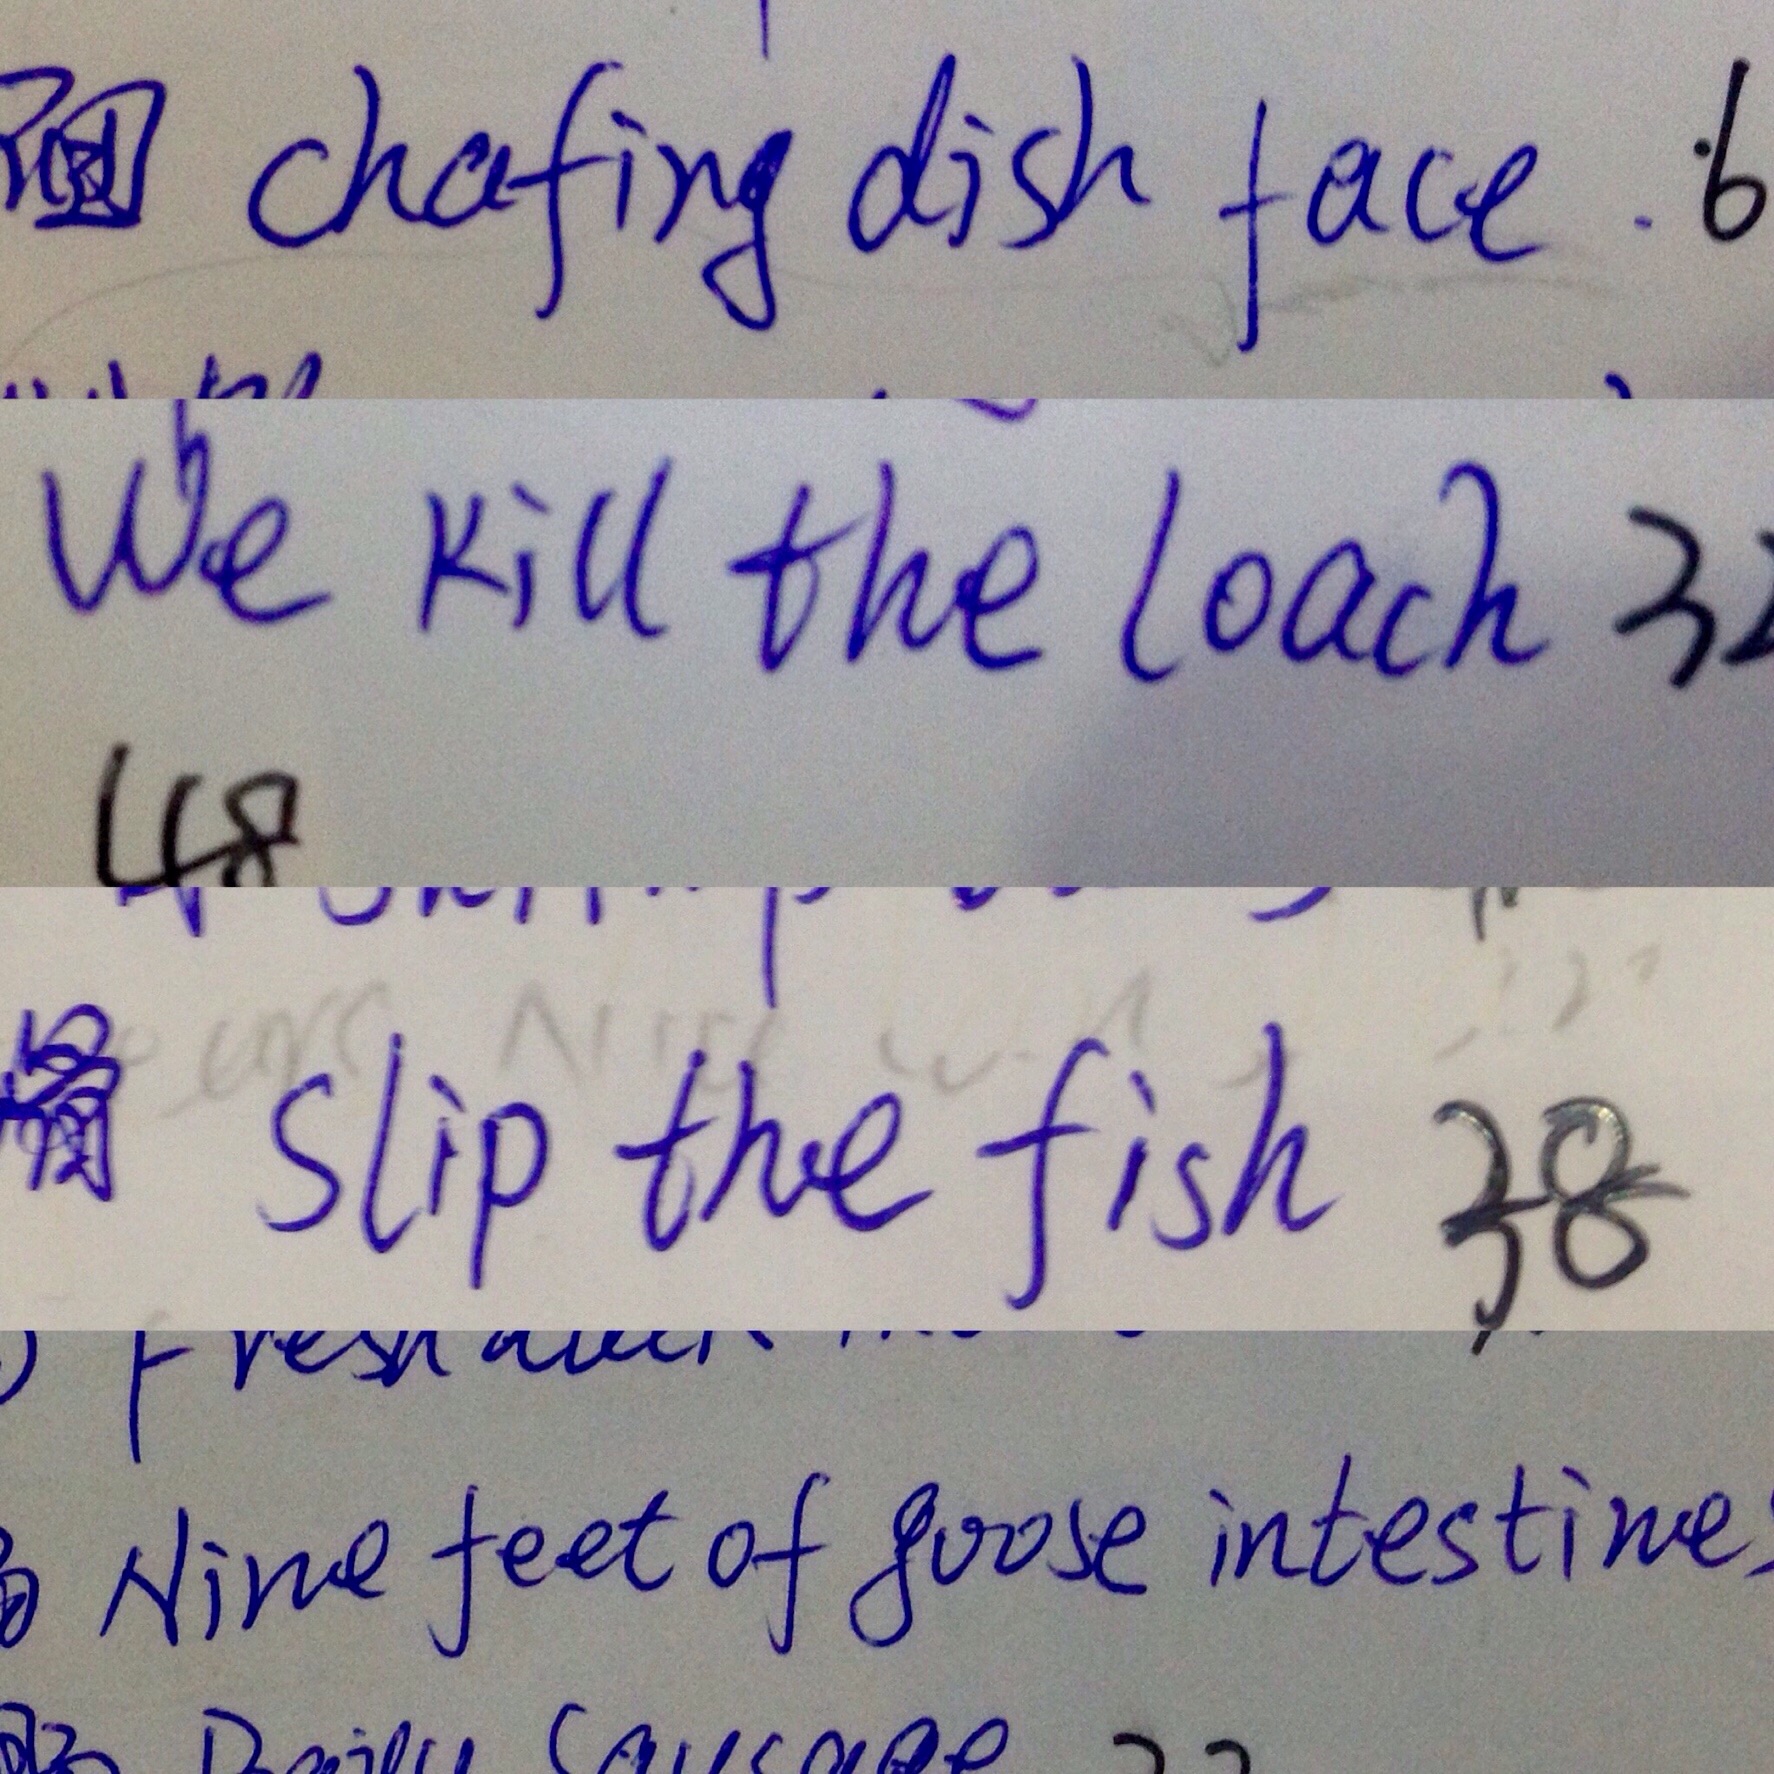 chafing dish face .6
We kill the loach 32
48
滑 Slip the fish 38
Nine feet of goose intestines
Daily Sausage